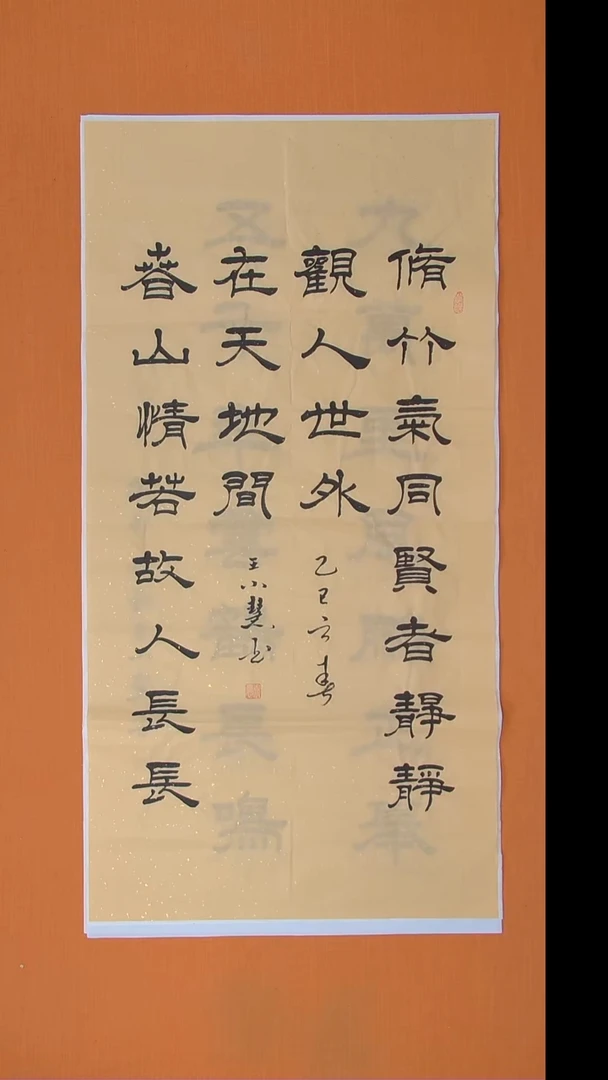 脩竹氣同賢者靜靜
觀人世外
乙巳立春
春山情若故人長長
在天地間
王小